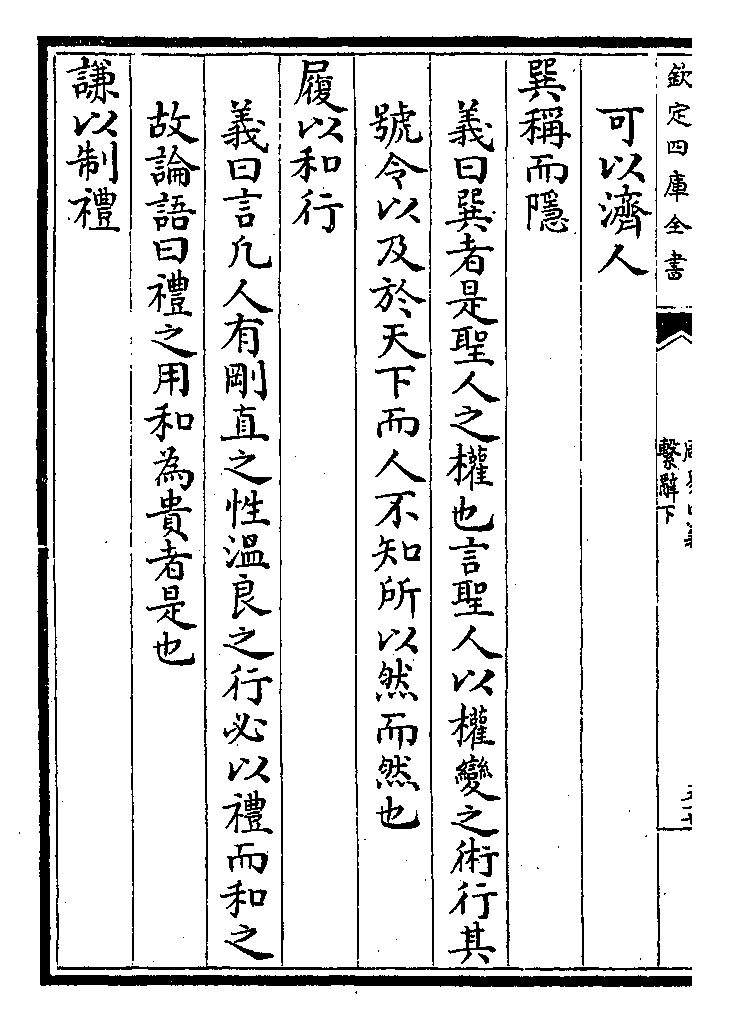 欽定四庫全書
繫辭下
可以濟人
巽稱而隱
義曰巽者是聖人之權也言聖人以權變之術行其
號令以及於天下而人不知所以然而然也
履以和行
義曰言凡人有剛直之性溫良之行必以禮而和之
故論語曰禮之用和為貴者是也
謙以制禮